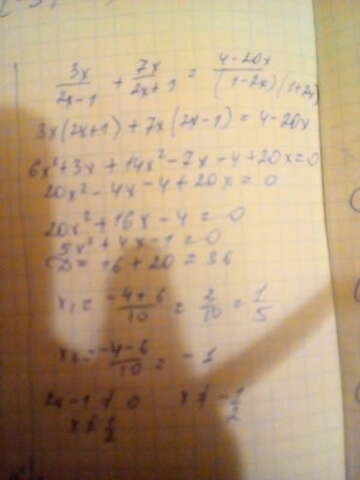 3x/(2x-1) + 7x/(2x+1) = (4-20x)/((1-2x)(1+2x))
3x(2x+1)+7x(2x-1)=4-20x
6x²+3x+14x²-7x-4+20x=0
20x²-4x-4+20x=0
20x²+16x-4=0
5x²+4x-1=0
D=16+20=36
x₁=(-4+6)/10=2/10=1/5
x₂=(-4-6)/10=-1
2x-1≠0 x≠-1/2
x≠1/2